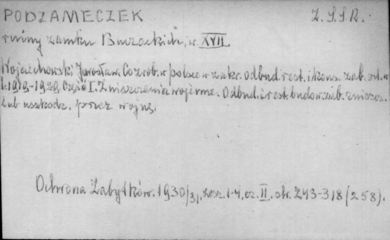 PODZAMECZEK Z.S.S.R.
ruiny zamku Buczackich, w. XVII
Wojciechowski Jarosław. Co zrob. w polsce w zakr. odbud. rest. i kons. zab. arch. w
l. 1919-1929. Część I. Zniszczenia wojenne. Odbud. i rest. budow. zab. zniszcz.
lub uszkodz. przez wojnę.
Ochrona Zabytków. 1930/31, zesz. 1-4. cz. II. str. 243-318 (258).